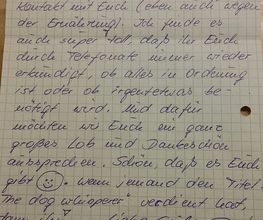 Kontakt mit Euch (eben auch wegen
der Ernährung). Ich finde es
auch super toll, daß ihr Euch
durch Telefonate immer wieder
erkundigt, ob alles in Ordnung
ist oder ob irgendetwas be-
nötigt wird. Und dafür
möchten wir Euch ein ganz
großes Lob und Dankeschön
aussprechen. Schön, daß es Euch
gibt ☺. Wenn jemand den Titel
"The dog whisperer" verdient hat,
dann